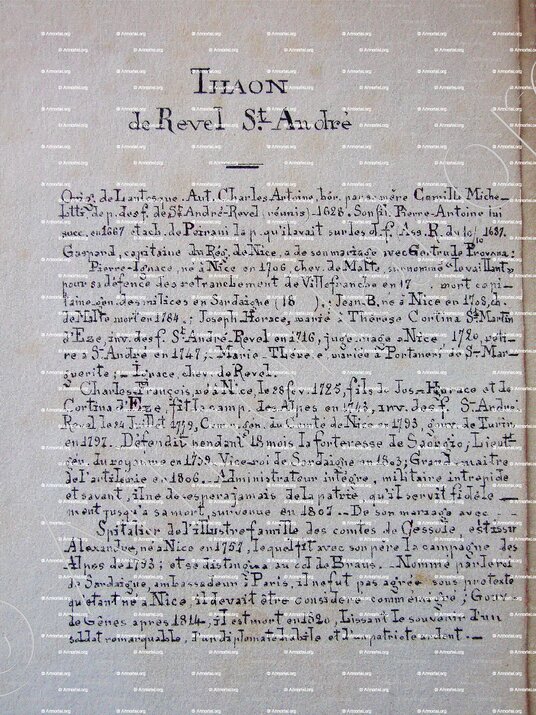 THAON
de Revel St. André
Orig. de Lantosque. Aut. Charles Antoine, hér. par sa mère Camille Miche-
letty de p. des f. de St. André-Revel, réunis, 1628. Son fils Pierre-Antoine lui
succ. en 1667 et ach. de Peirani la p. qu'il avait sur les d. f. Ass. R. du 1687.
Gaspard, capitaine du Rég. de Nice, a de son mariage avec Gertrude Provana:
Pierre-Ignace, né à Nice en 1706, chev. de Malte, surnommé le vaillant,
pour sa défence des retranchement de Villefranche en 17 , mort capi-
taine gén. des milices en Sardaigne (18 ); Jean B. né à Nice en 1708, ch.
de Malte mort en 1784; Joseph Horace, marié à Thérèse Cortina St. Martin
d'Eze, inv. des f. St. André-Revel en 1716, juge mage à Nice, 1720,
à St. André en 1747; Marie-Thère e, mariée à Portaneri de St. Mar-
guerite; Ignace, chev. de Revel.
Charles-François, né à Nice, le 28 fév. 1725, fils de Jos. Horace et de
Cortina d'Eze, fit la camp. des Alpes en 1743, inv. des f. St. André
Revel le 24 Juillet 1779, Com. gén. du Comté de Nice en 1793, gouv. de Turin
en 1797. Défendit pendant 18 mois la forteresse de Saorgio; Lieut.
gén. du royaume en 1799. Vice-roi de Sardaigne en 1803; Grand-maitre
de l'artilerie en 1806. Administrateur intègre, militaire intrépide
et savant, il ne desespera jamais de la patrie, qu'il servit fidèle-
ment jusqu'à sa mort, survenue en 1807. De son mariage avec
Spitalier de l'illustre famille des comtes de Cessole, est issu
Alexandre, né à Nice en 1757, lequel fit avec son père la campagne des
Alpes de 1793; et se distingua au col de Braus. Nommé par le roi
de Sardaigne, ambassadeur à Paris, il ne fut pas agréé sous prétexte
qu'étant né à Nice il devait être considéré comme émigré; Gouv.
de Gênes après 1814, il est mort en 1820, laissant le souvenir d'un
soldat remarquable, d'un diplomate habile et d'un patriote ardent.